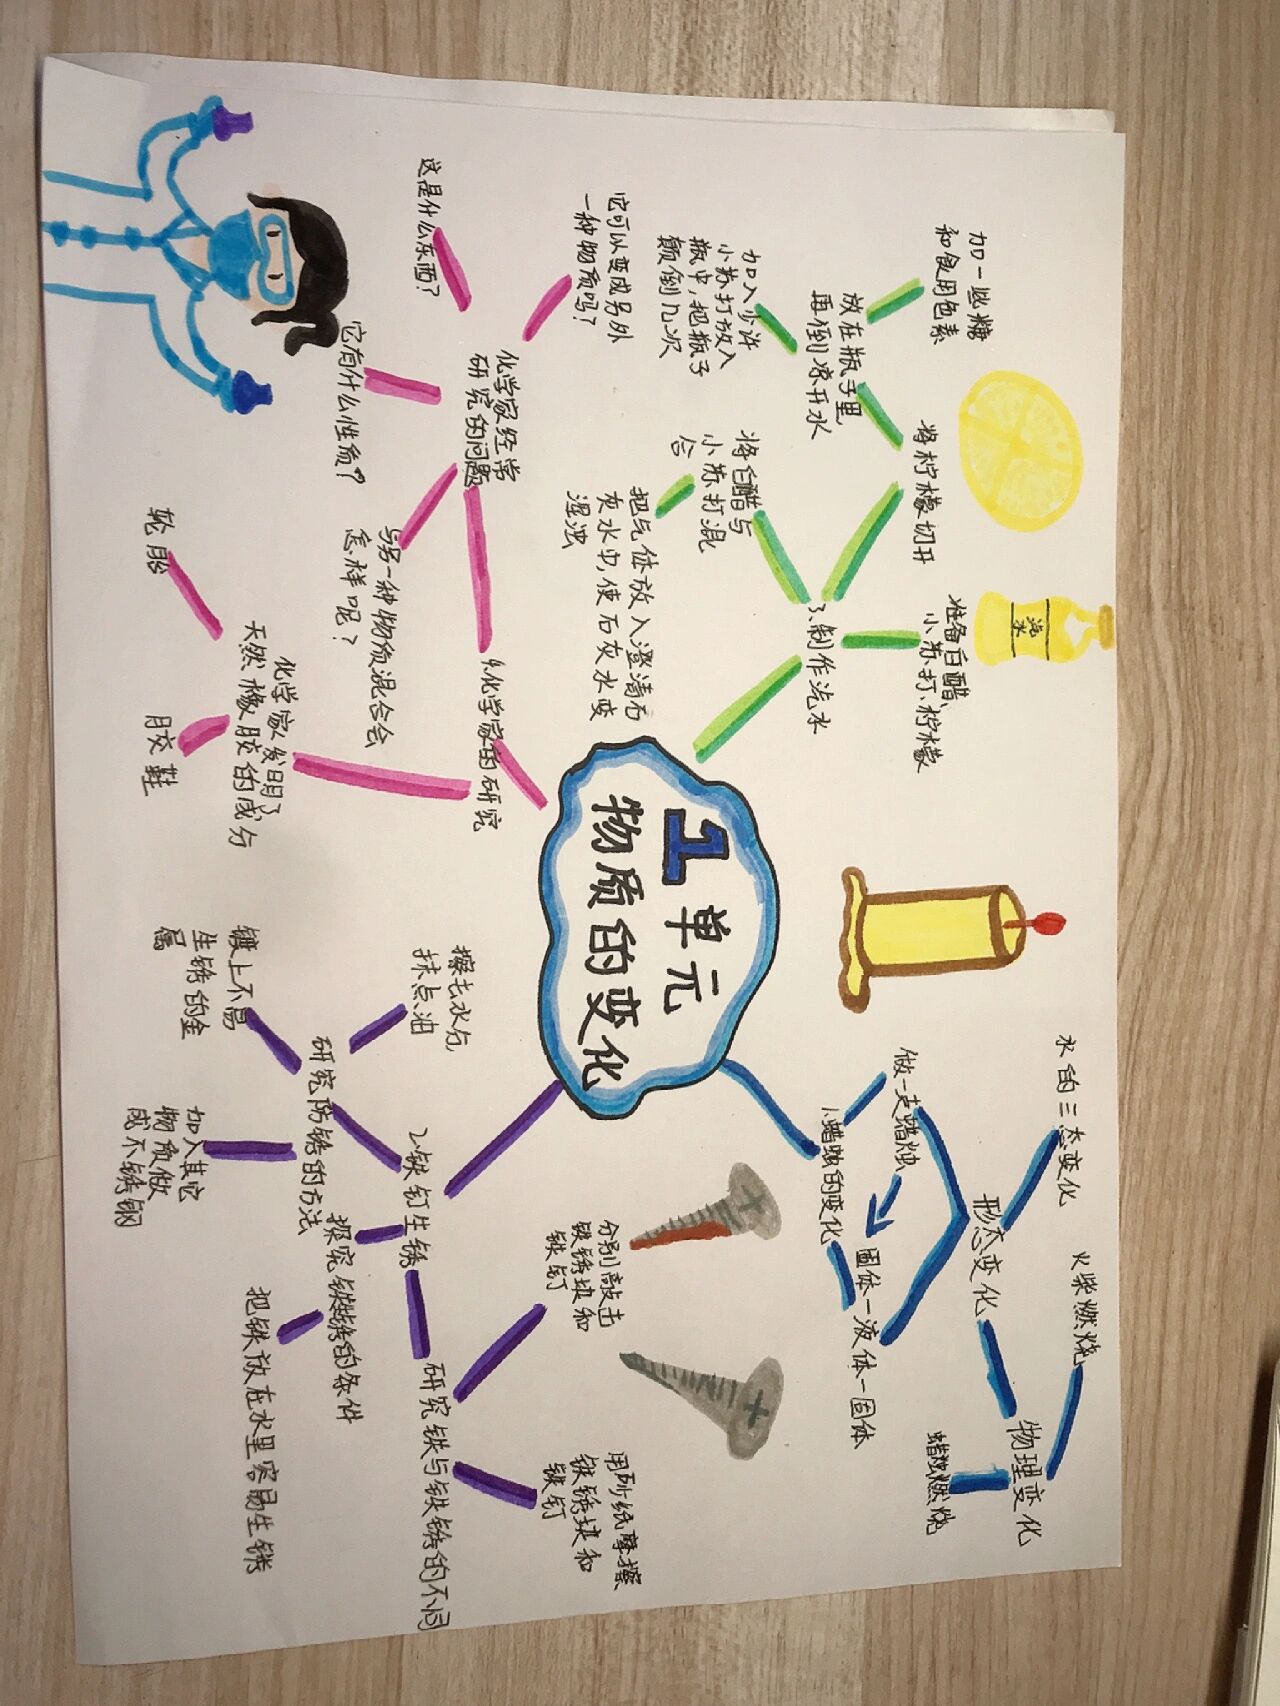 1单元
物质的变化
1.蜡烛的变化
做一支蜡烛
固体—液体—固体
形态变化
水的三态变化
物理变化
火柴燃烧
蜡烛燃烧
2.铁钉生锈
研究铁与铁锈的不同
分别敲击
铁锈块和
铁钉
用砂纸摩擦
铁锈块和
铁钉
探究铁生锈的条件
把铁放在水里容易生锈
研究防锈的方法
擦去水分
抹点油
镀上不易
生锈的金
属
加入其它
物质做
成不锈钢
3.制作汽水
准备白醋、
小苏打、柠檬
汽水
将柠檬切开
放在瓶子里
再倒凉开水
加一些糖
和食用色素
加入少许
小苏打放入
瓶中,把瓶子
颠倒几次
将白醋与
小苏打混
合
把气体放入澄清石
灰水中,使石灰水变
混浊
4.化学家的研究
化学家经常
研究的问题
它可以变成另外
一种物质吗?
这是什么东西?
它有什么性质?
与另一种物质混合会
怎样呢?
化学家发明了
天然橡胶的成分
轮胎
胶鞋